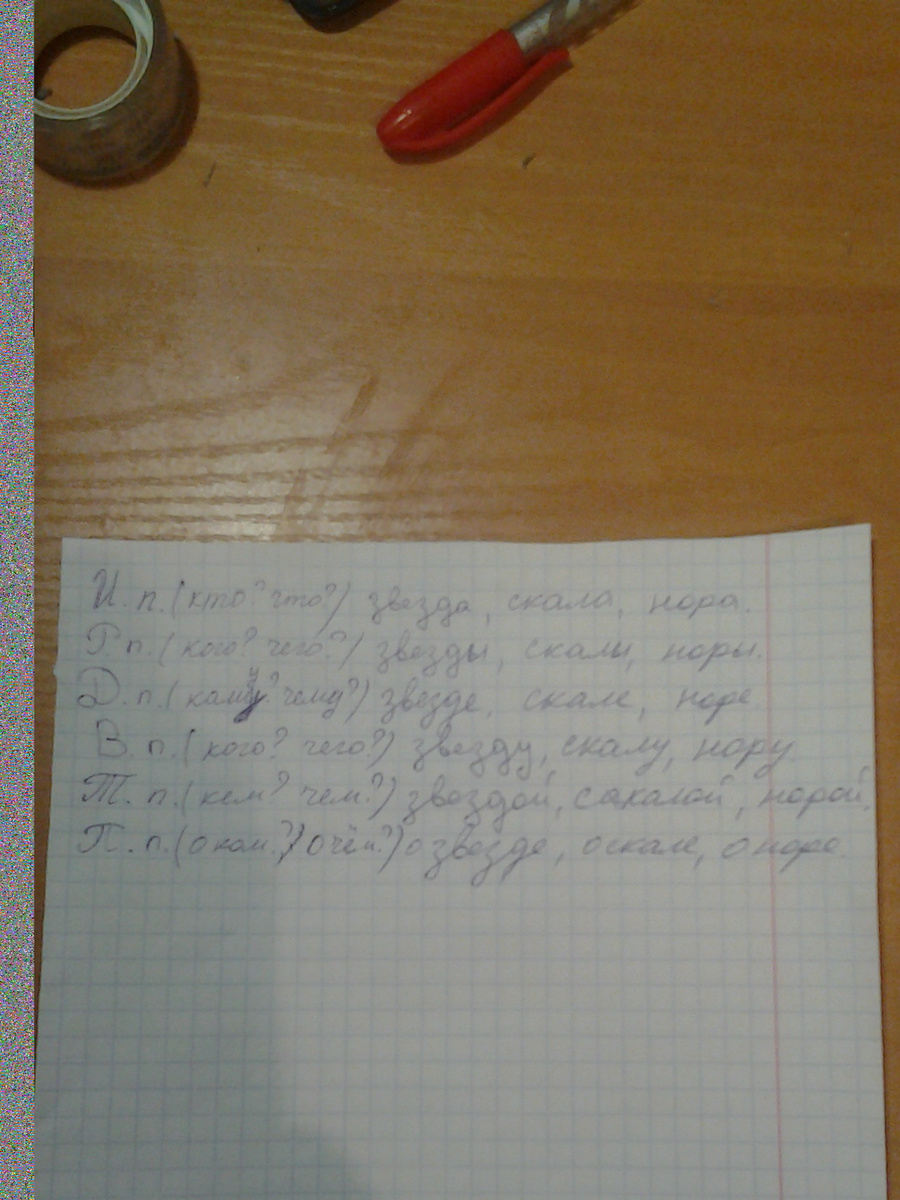 И. п. (кто? что?) звезда, скала, нора.
Р. п. (кого? чего?) звезды, скалы, норы.
Д. п. (каму? чему?) звезде, скале, норе
В. п. (кого? чего?) звезду, скалу, нору.
Т. п. (кем? чем?) звездой, сакалой, норой,
П. п. (о ком? / о чём?) о звезде, о скале, о норе.